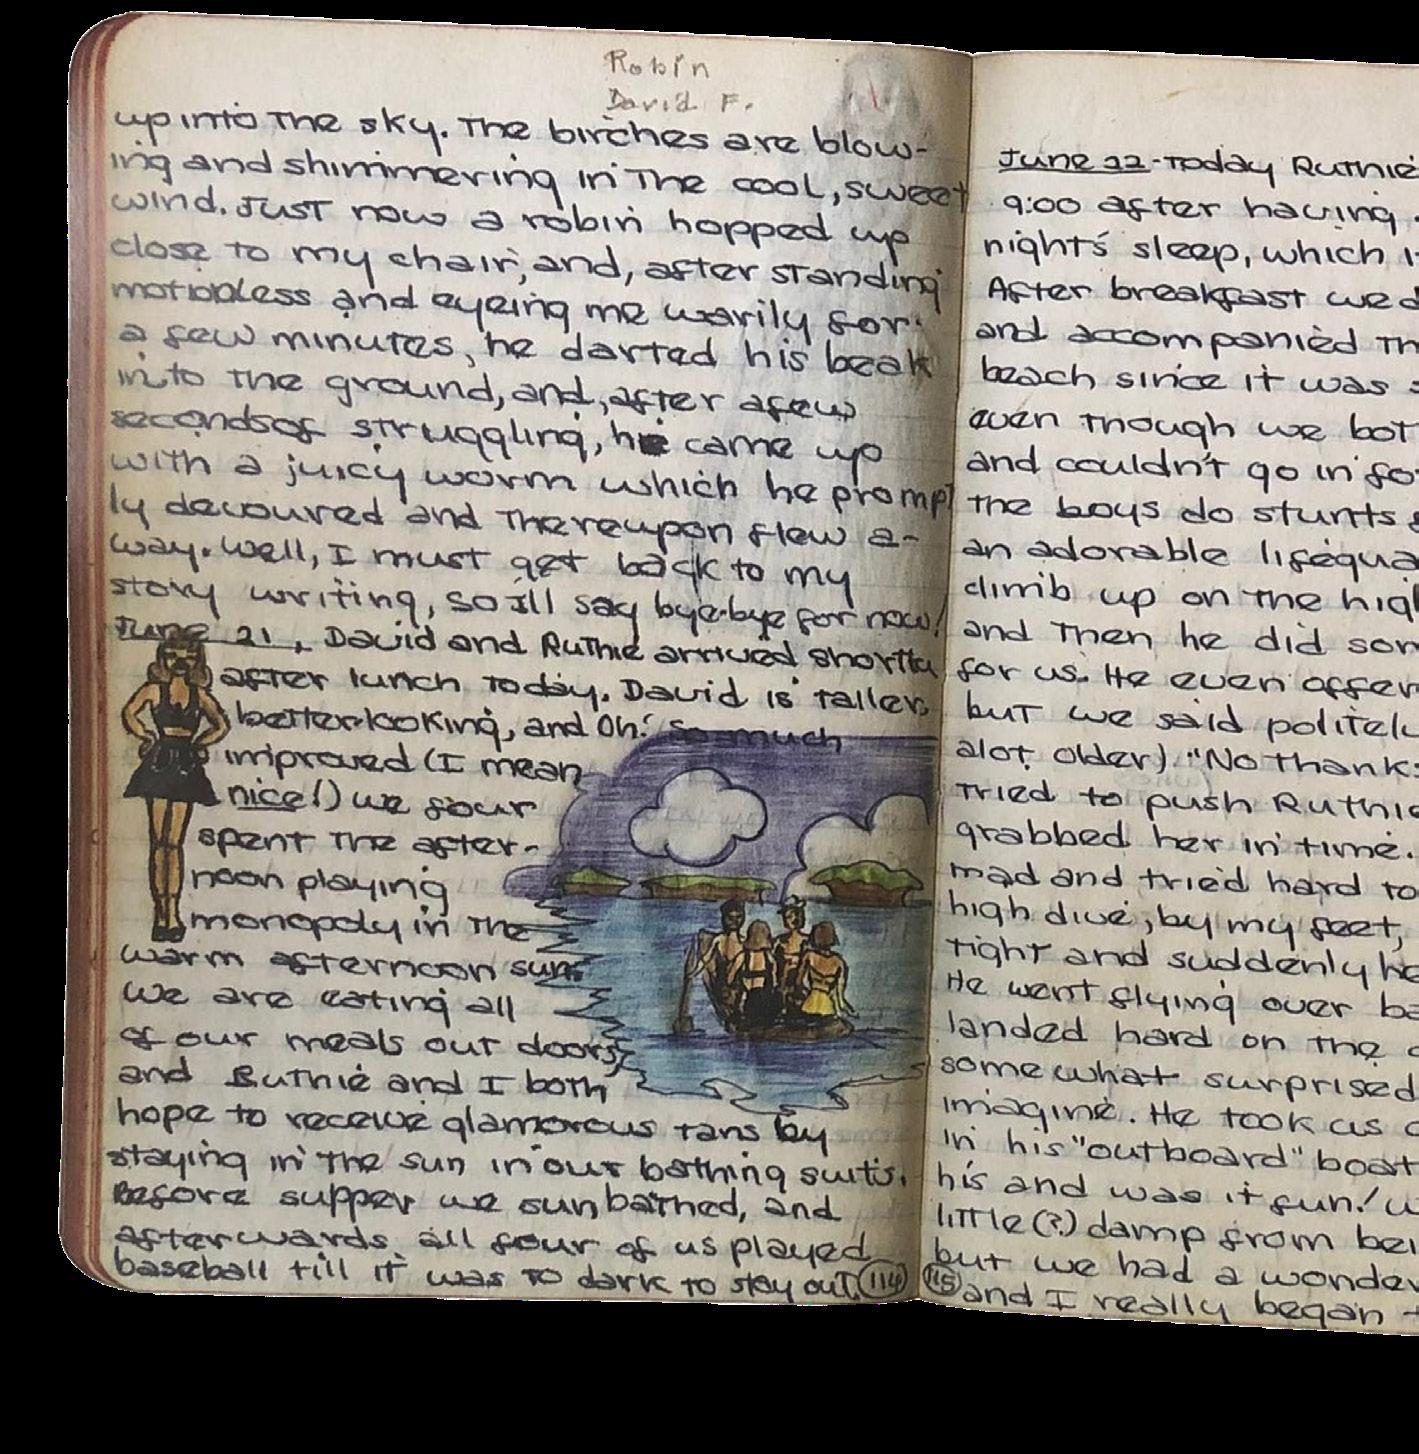 Robin
David F.
up into the sky. The birches are blow-
ing and shimmering in the cool, sweet
wind. Just now a robin hopped up
close to my chair, and, after standing
motionless and eyeing me warily for
a few minutes, he darted his beak
into the ground, and, after a few
seconds of struggling, he came up
with a juicy worm which he prompt
ly devoured and thereupon flew a-
way. Well, I must get back to my
story writing, so I'll say bye-bye for now!
June 21, David and Ruthie arrived shortly
after lunch today. David is taller,
better-looking, and Oh! so much
improved (I mean
nice!) we four
spent the after-
noon playing
monopoly in the
warm afternoon sun.
We are eating all
of our meals out doors,
and Ruthie and I both
hope to receive glamorous tans by
staying in the sun in our bathing suits.
Before supper we sunbathed, and
afterwards all four of us played
baseball till it was to dark to stay out.
114
June 22-Today Ruthie
9:00 after having
night's sleep, which
After breakfast we
and accompanied
beach since it was
even though we
and couldn't go in
the boys do stunts
an adorable
climb up on the
and then he did
for us. He even
but we said
alot older) "No
tried to push
grabbed her in time.
mad and tried hard to
high dive, by my feet,
tight and suddenly
He went flying over
landed hard on the
somewhat surprised
imagine. He took us
in his "outboard" boat
his and was it fun!
little (?) damp from
but we had a
115
and I really began